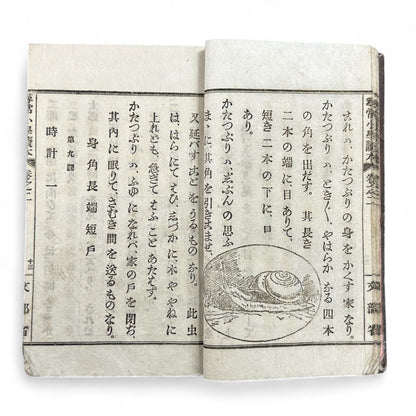 尋常小學讀本 巻之二 文部省
これハ、かたつぶりの身をかくす家なり。
かたつぶりハ、とき〴〵、やはらかなる四本
の角を出だす。其長き
二本の端に目ありて、
短き二本の下に、口
あり。
かたつぶりハ、じぶんの思ふ
まゝに、其角を引きこませ、
又延ばすことをうるものなり。此虫
は、はらにてはひ、しづかに、木やゝねに
上れども、急ぎてはふことあたはず。
かたつぶりハ、ふゆになれバ家の戸を閉ぢ、
其内に眠りて、さむき間を送るものなり。
身角長端短戸
第九課
時計一
尋常小學讀本 巻之二 十三 文部省